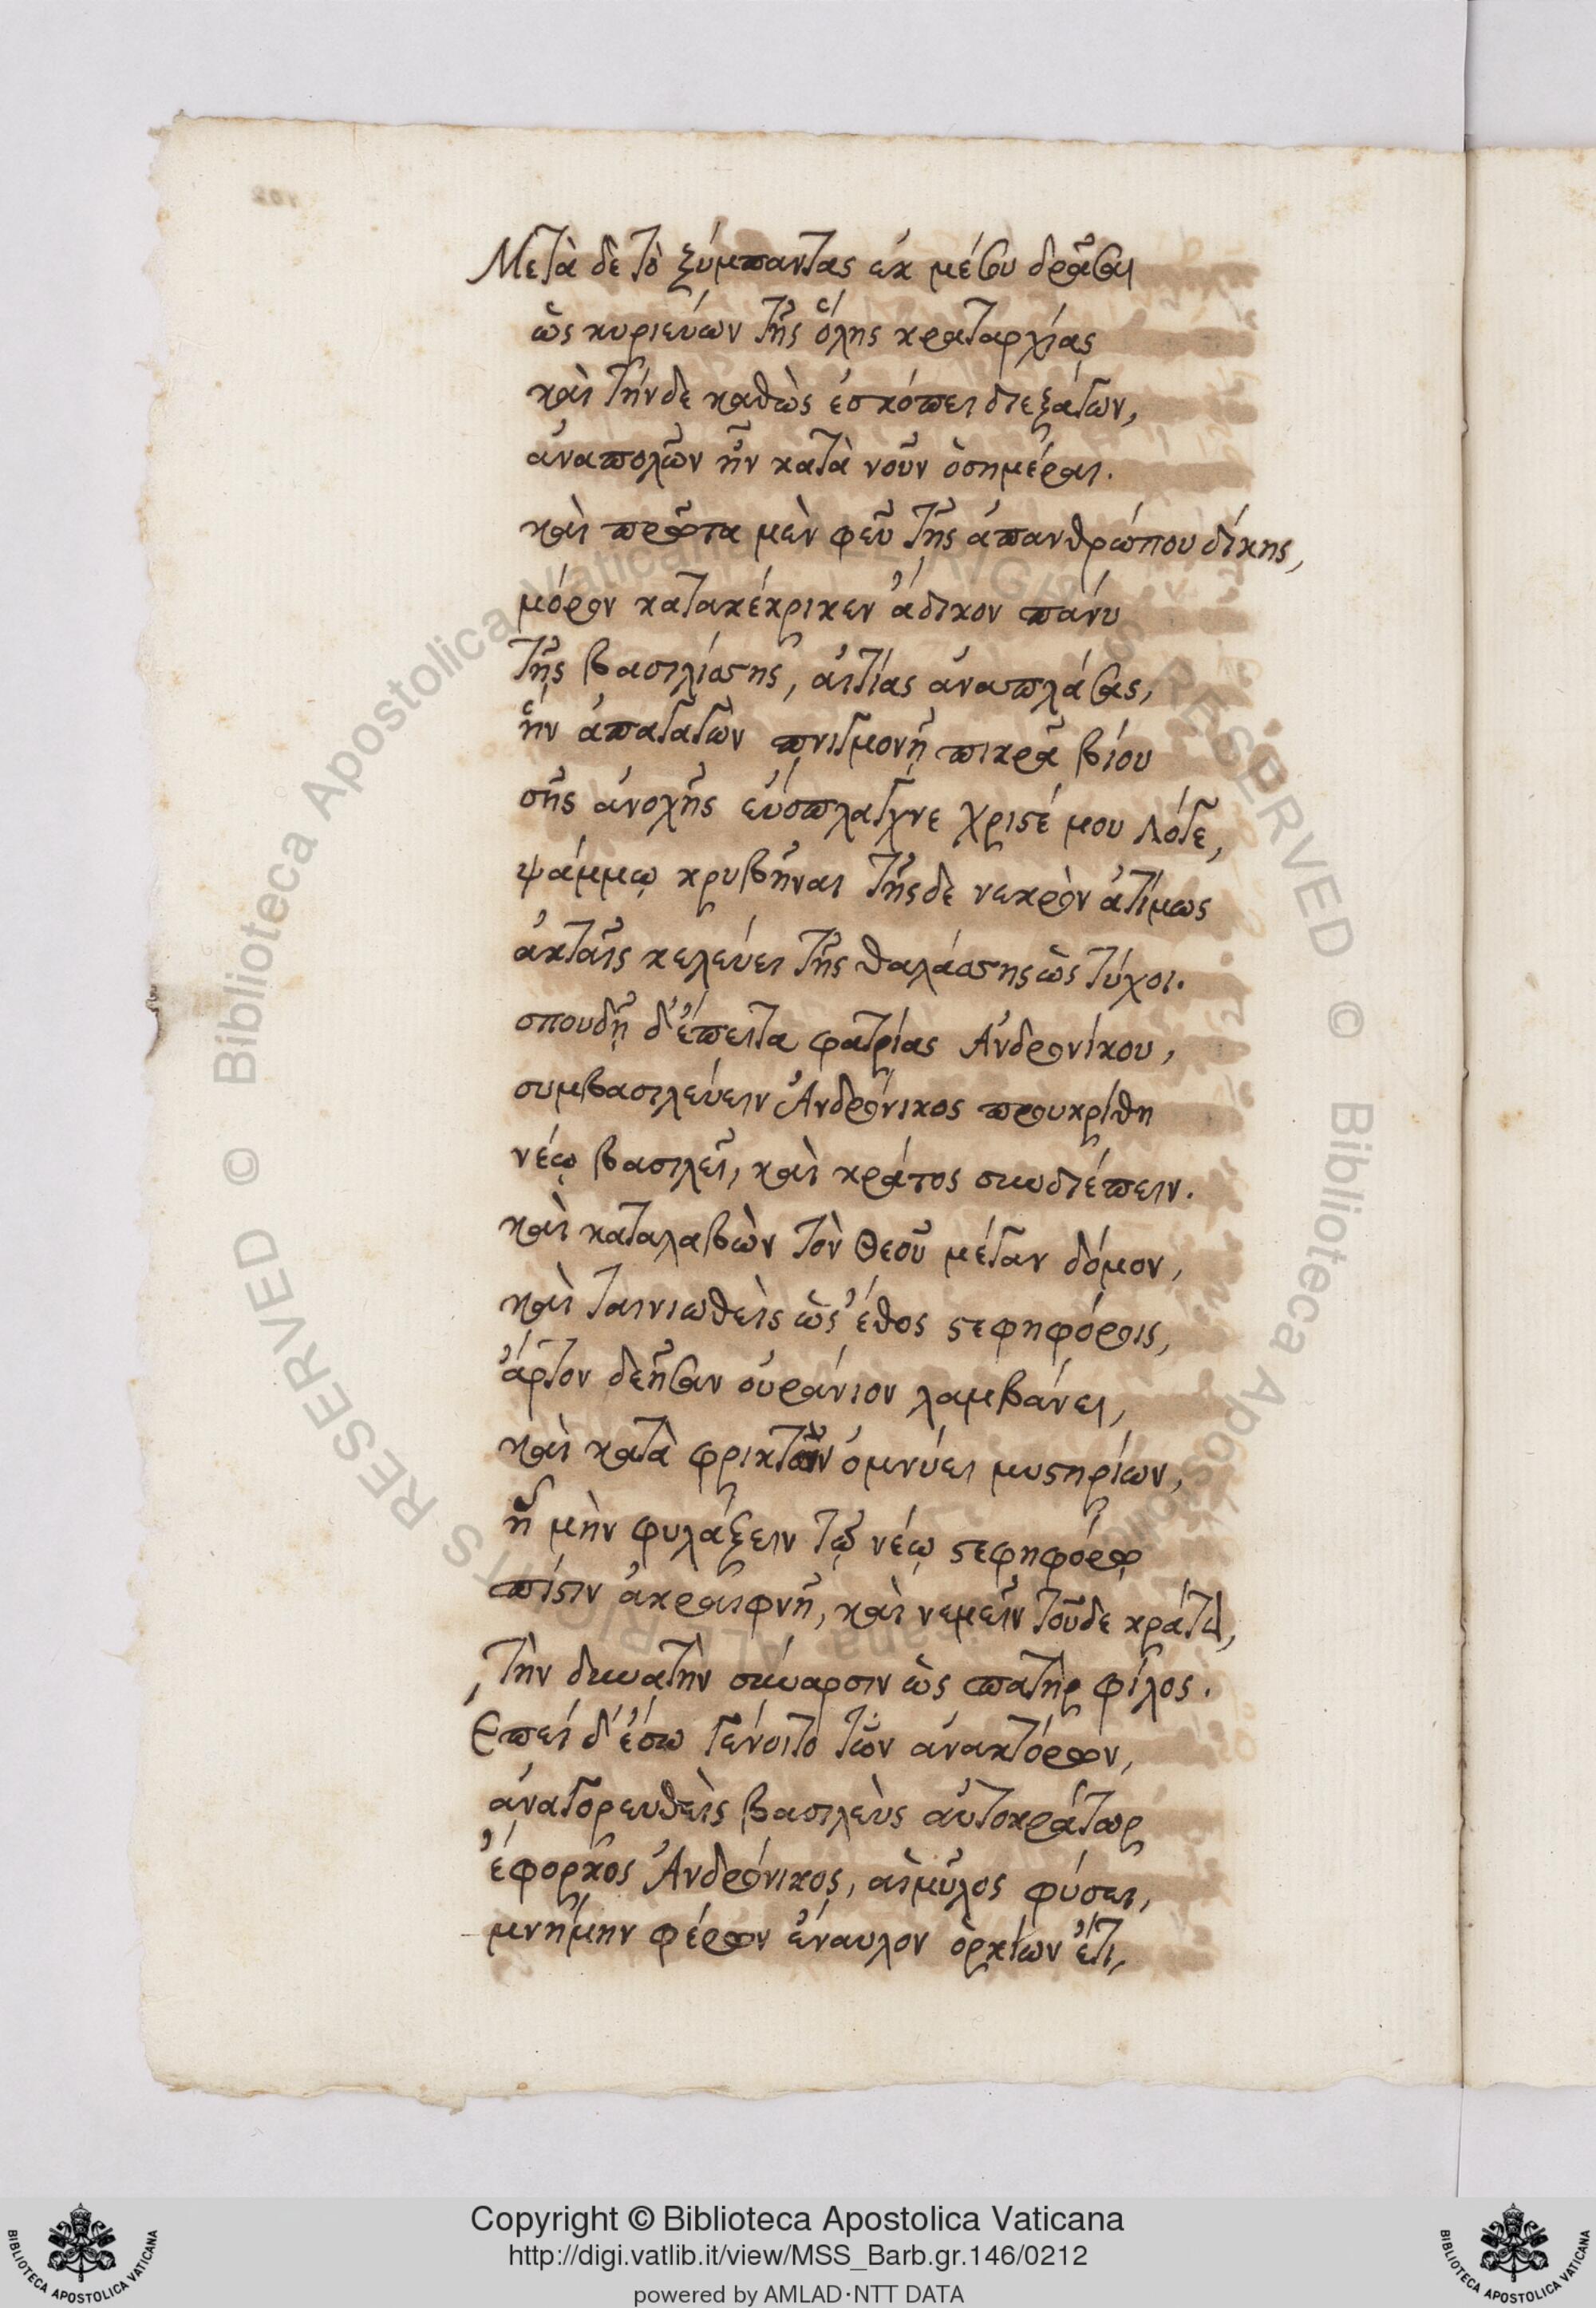 Μετὰ δὲ τὸ ξύμπαντας ἐκ μέσου δρᾶσαι
ὡς κυριεύων τῆς ὅλης κραταρχίας
καὶ τήνδε καθὼς ἐσκόπει διεξάγων,
ἀναπολῶν ἦν κατὰ νοῦν ὁσημέραι.
καὶ πρῶτα μὲν φεῦ τῆς ἀπανθρώπου δίκης,
μόρον κατακέκρικεν ἄδικον πάνυ
τῆς βασιλίσσης, αἰτίας ἀναπλάσας,
ἣν ἀπαγαγὼν πνιγμονῇ πικρᾷ βίου
σῆς ἀνοχῆς εὔσπλαγχνε χριστέ μου λόγε,
ψάμμῳ κρυβῆναι τῆσδε νεκρὸν ἀτίμως
ἀκταῖς κελεύει τῆς θαλάσσης ὡς τύχοι.
σπουδῇ δ' ἔπειτα φατρίας Ἀνδρονίκου,
συμβασιλεύειν Ἀνδρόνικος προυκρίθη
νέῳ βασιλεῖ, καὶ κράτος συνδιέπειν.
καὶ καταλαβὼν τὸν Θεοῦ μέγαν δόμον,
καὶ ταινιωθεὶς ὡς ἔθος στεφηφόροις,
ἄρτον δεῆσαν οὐράνιον λαμβάνει,
καὶ κατὰ φρικτῶν ὀμνύει μυστηρίων,
ἦ μὴν φυλάξειν τῷ νέῳ στεφηφόρῳ
πίστιν ἀκραιφνῆ, καὶ νεμεῖν τοῦδε κράτει,
τὴν δυνατὴν σύναρσιν ὡς πατὴρ φίλος.
Ἐπεὶ δ' ἔσω γένοιτο τῶν ἀνακτόρων,
ἀναγορευθεὶς βασιλεὺς αὐτοκράτωρ
ἔφορκος Ἀνδρόνικος, αἱμύλος φύσει,
μνήμην φέρων ἔναυλον ὁρκίων ἔτι,
Copyright © Biblioteca Apostolica Vaticana
http://digi.vatlib.it/view/MSS_Barb.gr.146/0212
powered by AMLAD·NTT DATA